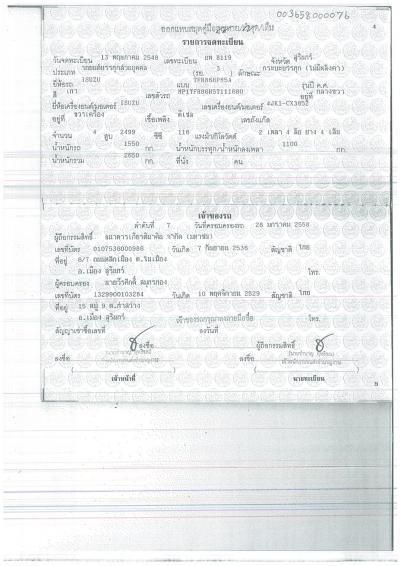 003658000076
4
รายการจดทะเบียน
วันจดทะเบียน 13 พฤษภาคม 2548 เลขทะเบียน ยพ 8119 จังหวัด สุรินทร์
ประเภท รถยนต์บรรทุกส่วนบุคคล (รย. 3 ลักษณะ กระบะบรรทุก (ไม่มีหลังคา)
ยี่ห้อรถ ISUZU แบบ รุ่นปี ค.ศ.
สี เทา เลขตัวรถ อยู่ที่ กลางขวา
ยี่ห้อเครื่องยนต์/มอเตอร์ ISUZU เลขเครื่องยนต์/มอเตอร์ 4JK1-CX3852
อยู่ที่ ขวาเครื่อง เชื้อเพลิง ดีเซล เลขถังแก๊ส
จำนวน 4 สูบ 2499 ซีซี 116 แรงม้า/กิโลวัตต์ 2 เพลา 4 ล้อ ยาง 4 เส้น
น้ำหนักรถ 1550 กก. น้ำหนักบรรทุก/น้ำหนักลงเพลา 1100 กก.
น้ำหนักรวม 2650 กก. ที่นั่ง คน
เจ้าของรถ
ลำดับที่ 7 วันที่ครอบครองรถ 28 มกราคม 2558
ผู้ถือกรรมสิทธิ์ ธนาคารเกียรตินาคิน จำกัด (มหาชน)
เลขที่บัตร 0107536000986 วันเกิด 7 กันยายน 2536 สัญชาติ ไทย
ที่อยู่ 6/7
อ.เมือง สุรินทร์ โทร.
ผู้ครอบครอง
เลขที่บัตร 1329900103284 วันเกิด 10 พฤศจิกายน 2529 สัญชาติ ไทย
ที่อยู่ 15 หมู่ 9
อ.เมือง สุรินทร์ เจ้าของรถกรุณาลงลายมือชื่อ โทร.
สัญญาเช่าซื้อเลขที่ ลงวันที่ ผู้ถือกรรมสิทธิ์
ลงชื่อ ลงชื่อ
เจ้าหน้าที่ นายทะเบียน
5